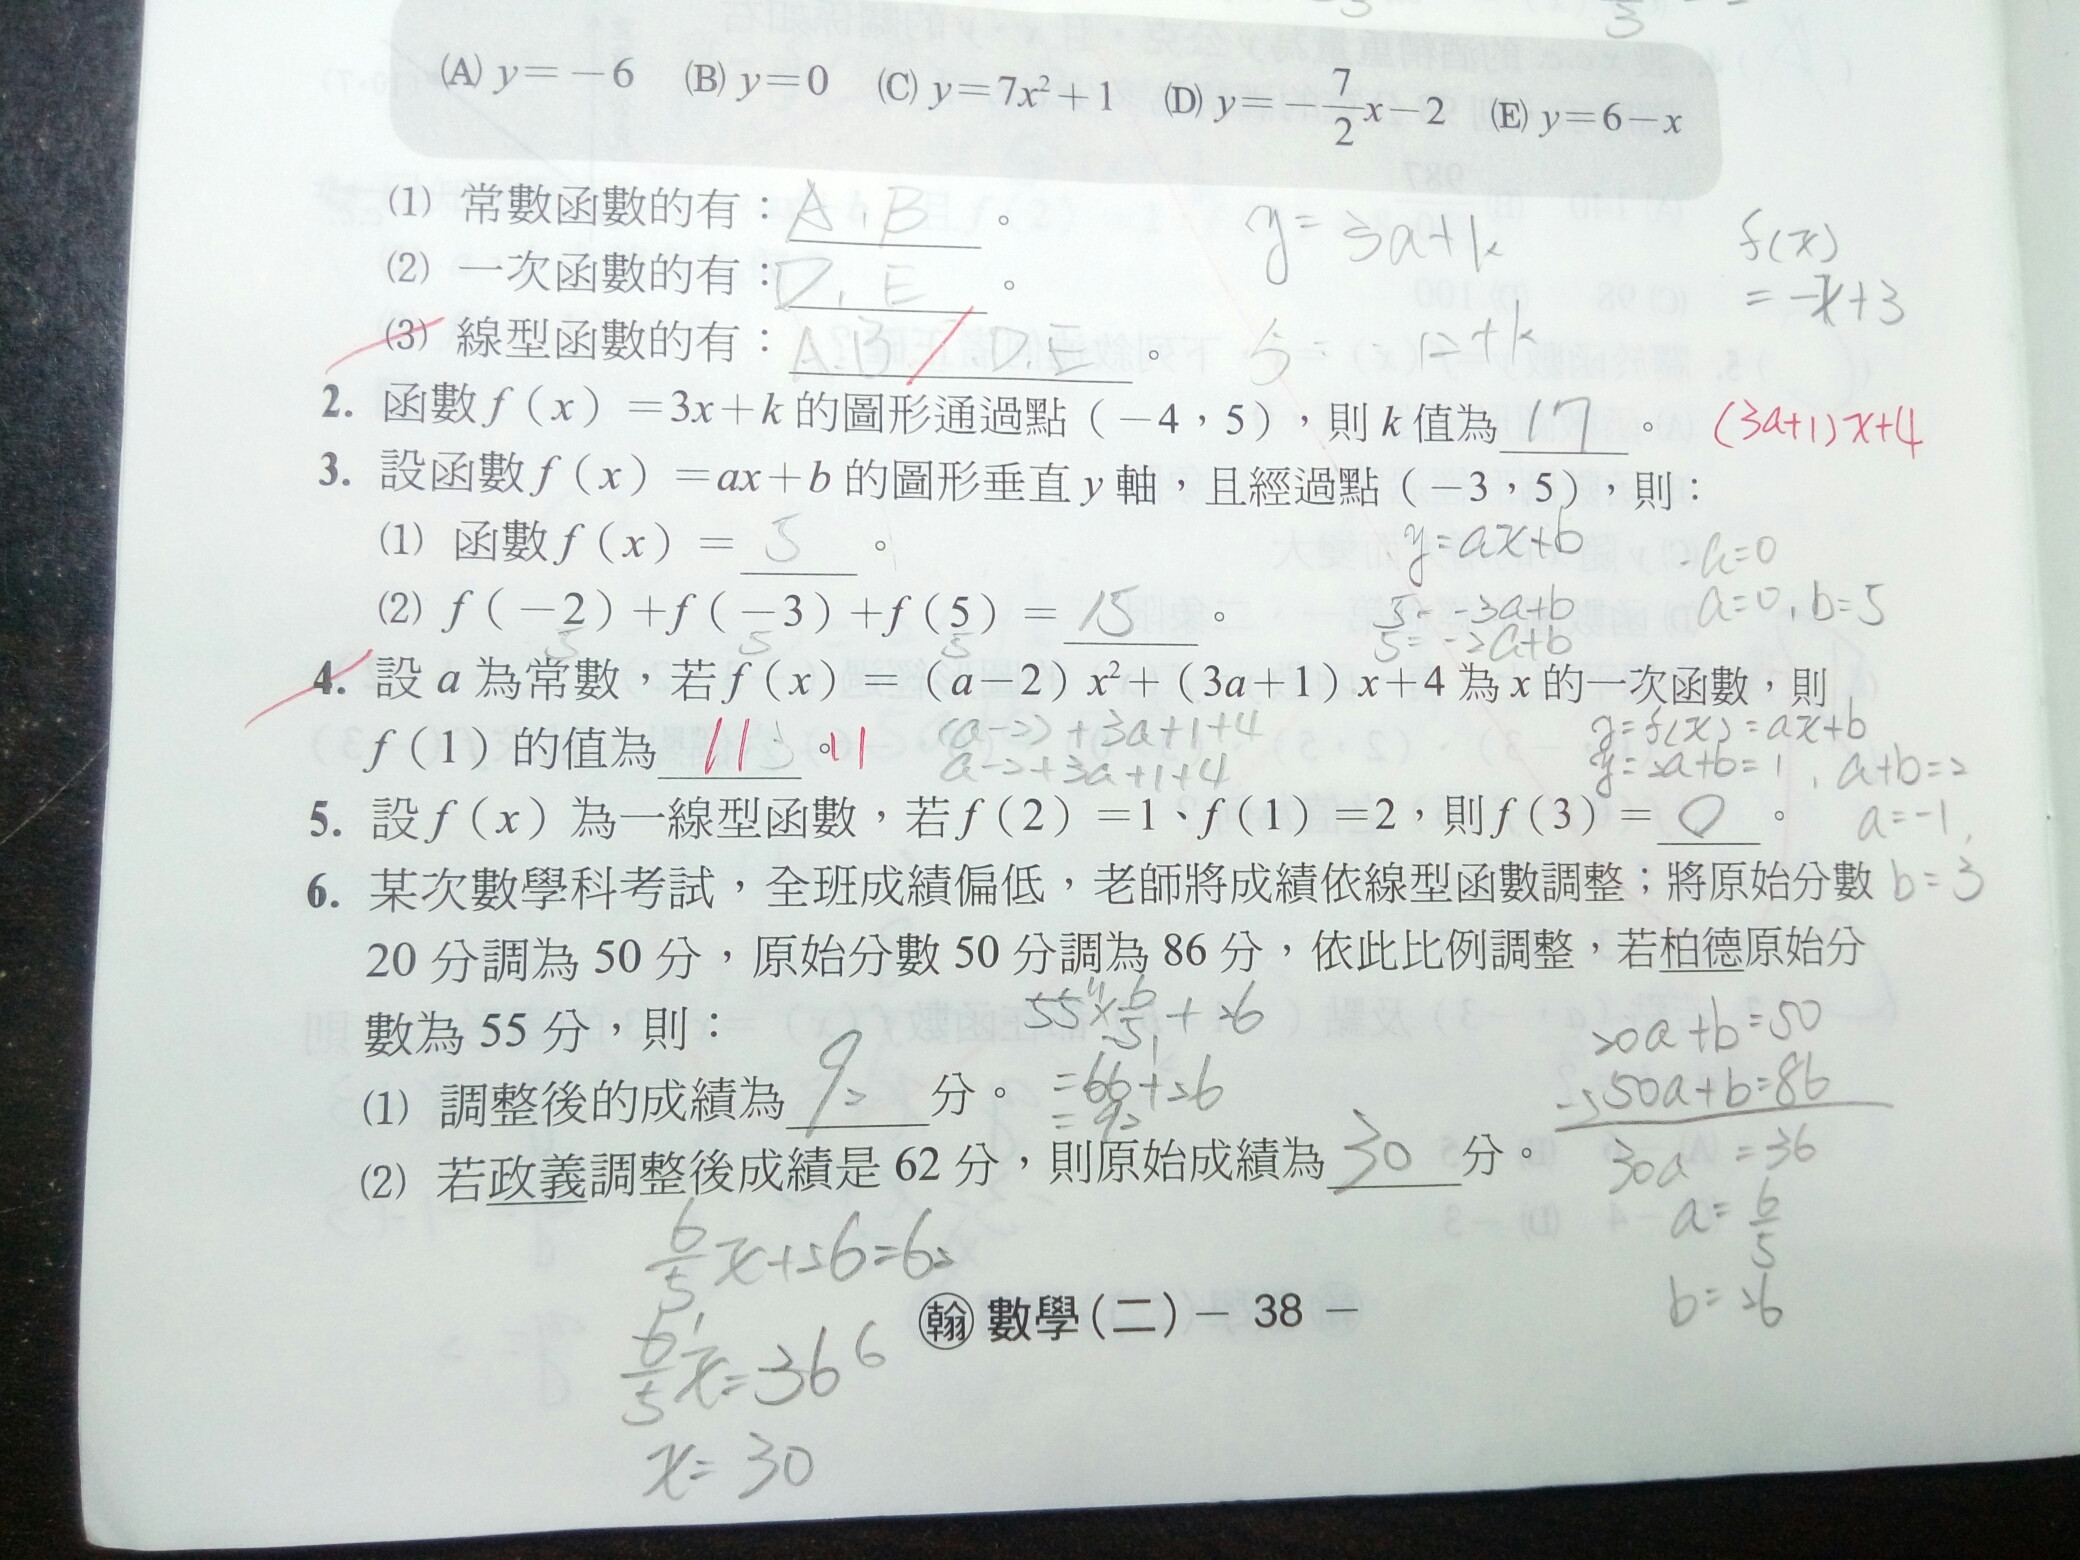 (A) y=-6 (B) y=0 (C) y=7x²+1 (D) y=-7/2x-2 (E) y=6-x
(1) 常數函數的有：A、B。
(2) 一次函數的有：D、E。
(3) 線型函數的有：A、B、D、E。
y=3a+k
5=-12+k
f(x)
=-x+3
2. 函數f(x)=3x+k的圖形通過點(-4，5)，則k值為17。
(3a+1)x+4
3. 設函數f(x)=ax+b的圖形垂直y軸，且經過點(-3，5)，則：
(1) 函數f(x)=5。
y=ax+b
a=0
(2) f(-2)+f(-3)+f(5)=15。
5 5 5
5=-3a+b
5=-2a+b
a=0、b=5
4. 設a為常數，若f(x)=(a-2)x²+(3a+1)x+4為x的一次函數，則
f(1)的值為11。11
(a-2)+3a+1+4
a-2+3a+1+4
y=f(x)=ax+b
y=2a+b=1，a+b=2
a=-1，
b=3
5. 設f(x)為一線型函數，若f(2)=1、f(1)=2，則f(3)=0。
6. 某次數學科考試，全班成績偏低，老師將成績依線型函數調整；將原始分數
20分調為50分，原始分數50分調為86分，依此比例調整，若柏德原始分
數為55分，則：
55×6/5+26
=66+26
=92
(1) 調整後的成績為92分。
(2) 若政義調整後成績是62分，則原始成績為30分。
20a+b=50
50a+b=86
30a=36
a=6/5
b=26
6/5x+26=62
6/5x=36
x=30
翰 數學(二)－38－